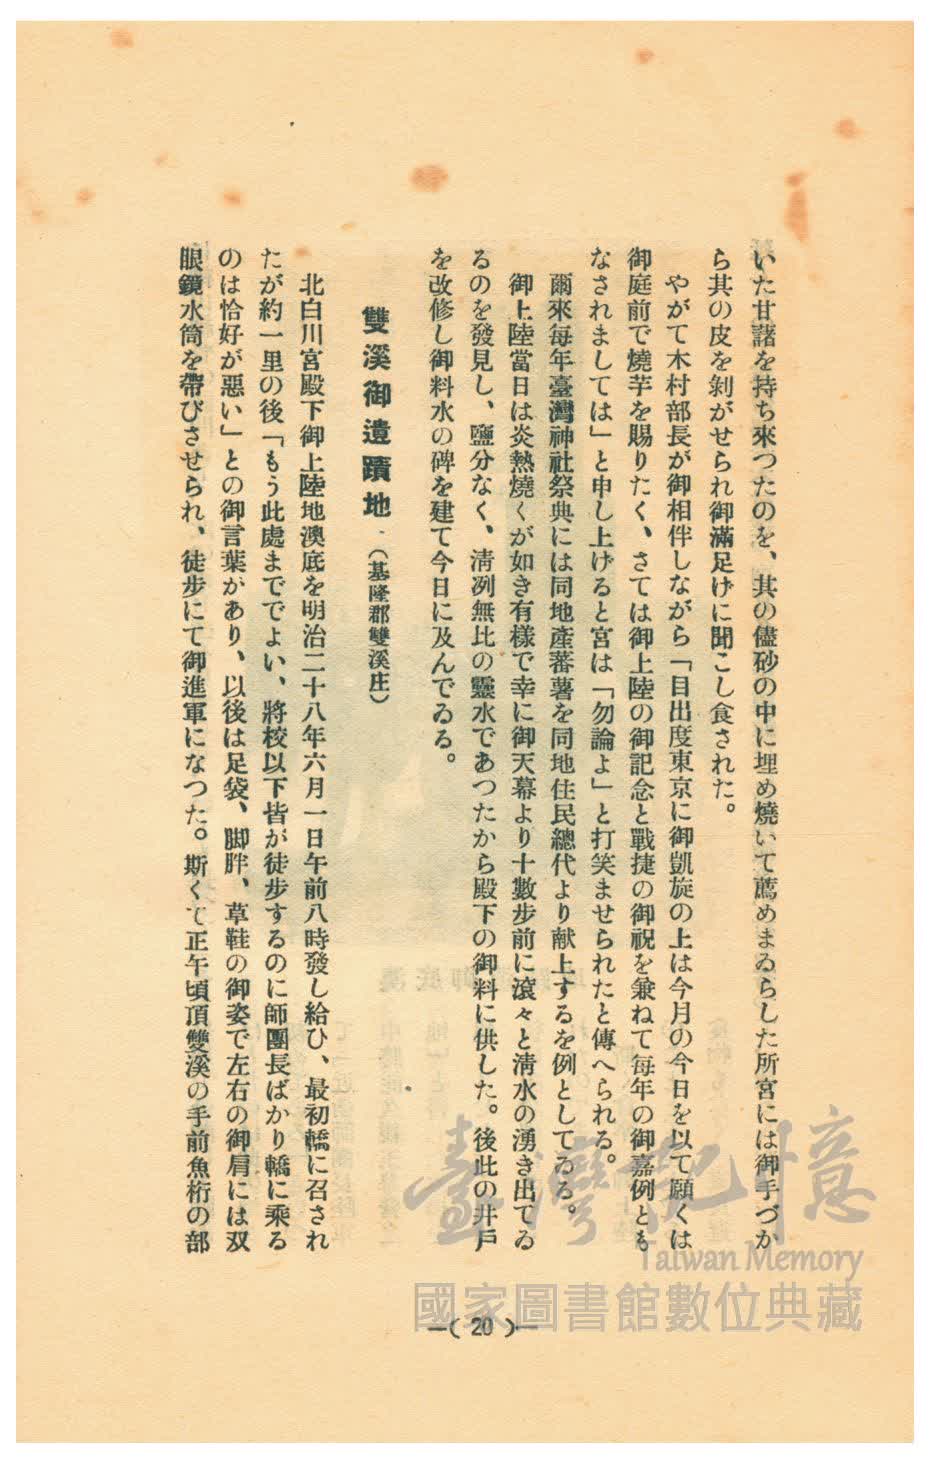 いた甘藷を持ち來つたのを、其の儘砂の中に埋め燒いて薦めまゐらした所宮には御手づか
ら其の皮を剝がせられ御滿足げに聞こし食された。
やがて木村部長が御相伴しながら「目出度東京に御凱旋の上は今月の今日を以て願くは
御庭前で燒芋を賜りたく、さては御上陸の御記念と戰捷の御祝を兼ねて每年の御嘉例とも
なされましては」と申し上げると宮は「勿論よ」と打笑ませられたと傳へられる。
爾來每年臺灣神社祭典には同地產蕃薯を同地住民總代より献上するを例としてゐる。
御上陸當日は炎熱燒くが如き有樣で幸に御天幕より十數步前に滾々と淸水の湧き出てゐ
るのを發見し、鹽分なく、淸冽無比の靈水であつたから殿下の御料に供した。後此の井戶
を改修し御料水の碑を建て今日に及んでゐる。
雙溪御遺蹟地（基隆郡雙溪庄）
北白川宮殿下御上陸地澳底を明治二十八年六月一日午前八時發し給ひ、最初轎に召され
たが約一里の後「もう此處まででよい、將校以下皆が徒步するのに師團長ばかり轎に乘る
のは恰好が惡い」との御言葉があり、以後は足袋、脚胖、草鞋の御姿で左右の御肩には双
眼鏡水筒を帶びさせられ、徒步にて御進軍になつた。斯くて正午頃頂雙溪の手前魚桁の部
—( 20 )—
臺灣記憶
Taiwan Memory
國家圖書館數位典藏